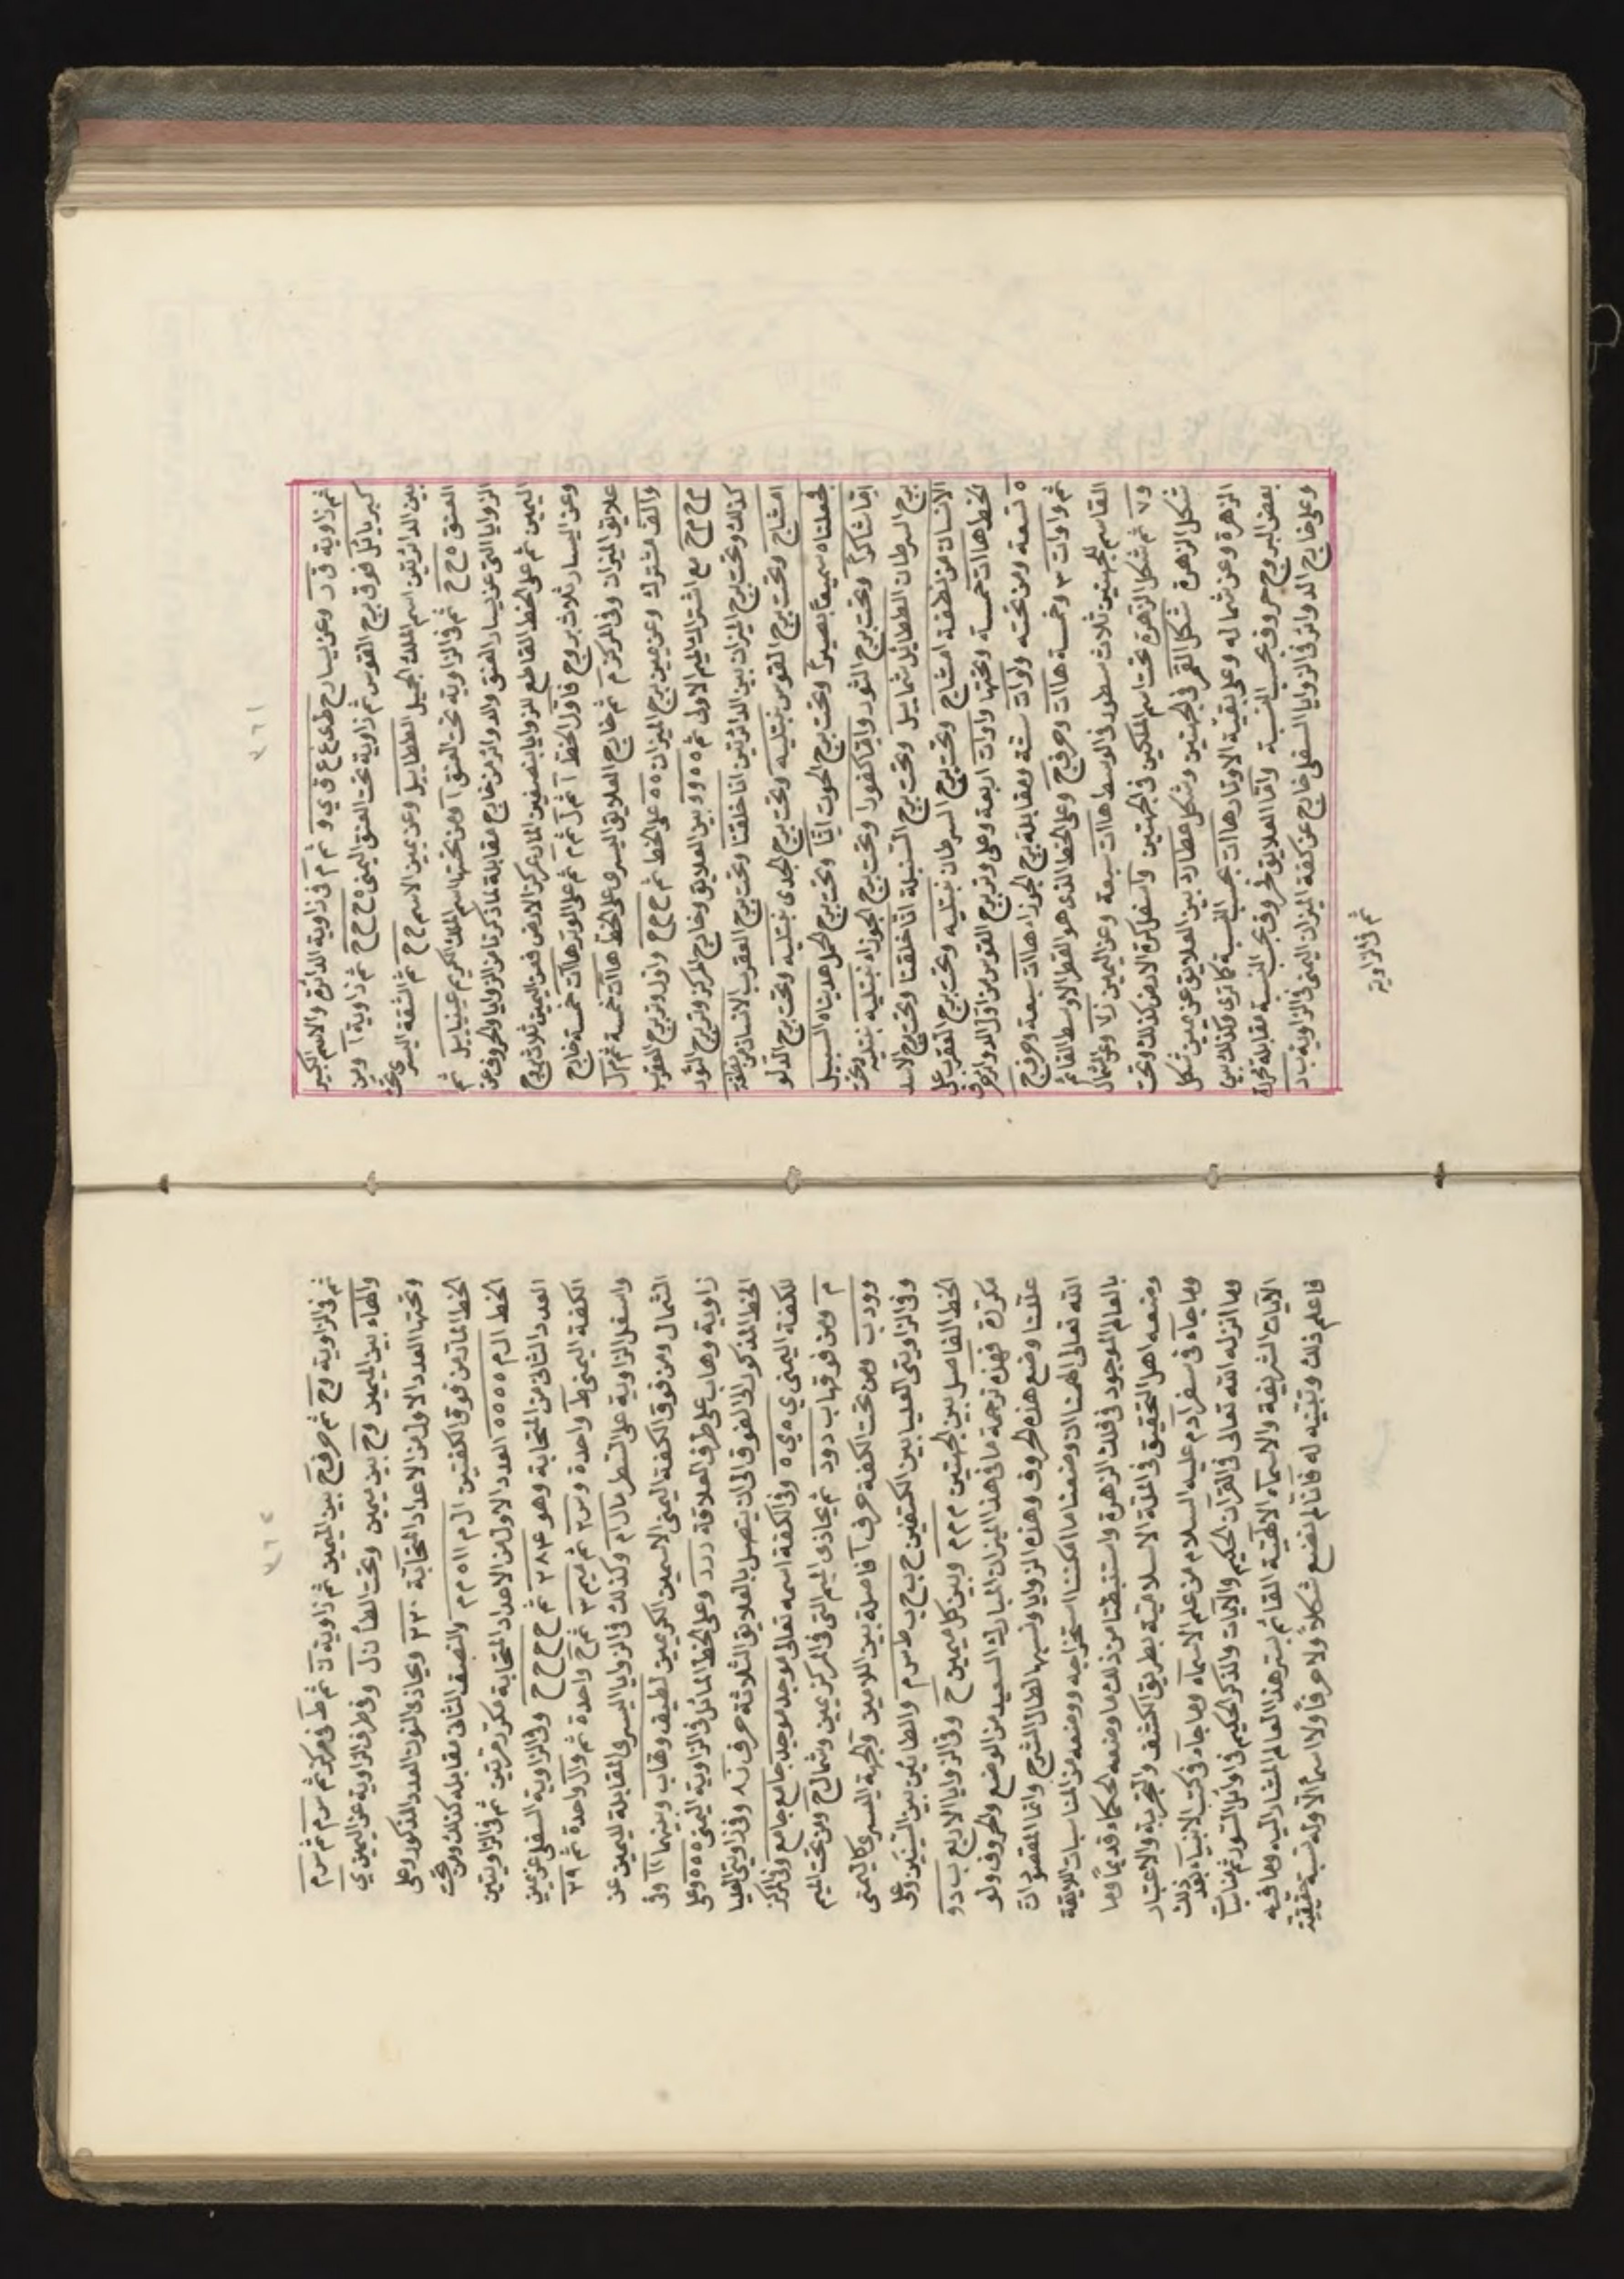 ٣٦١
ثم زاوية ق ر وعن يسارح ط ع غ ق ي و ثم م في زاوية الدائرة والاسم الكبير
كبريائل فوق برج القوس ثم زاوية تحت العنق اليمنى ح ح ح ح ثم زاوية آ ومن
بين الدائرتين اسم الملك الجليل الططاييل وعن يمين الاسم ح ح ثم الشقة اليسرى تحت
العنق ح ح ثم في الزاوية تحت العنق آ ومن تحتها اسم الملك الكريم عينيابيل ثم
الزوايا التي عن يسار العنق والدوائر من خارج مقابلة لما ذكرنا من الزوايا والحروف عن
اليمين ثم على الخط القاطع للزوايا بنصفين المار بمركز الارض فعن اليمين ثلاث بروج
وعن اليسار ثلاث بروج فاول الخط آ ثم ل ثم م ثم على الوتر هاآت خمسة خارج
علايق الميزان وفي المركز م ثم خارج العلايق اليسرى على الخط هاآت خمسة ثم ل
والف مشترك وعن يمين برج الميزان ه ه على الخط ثم ح ح ح واول وتر برج العقرب
ح ح ح مع اشتراك الميم الاولى ثم ه ه و و بين العلايق وخارج المركز وتر برج الثور
كذلك وتحت برج الميزان بين الدائرتين انا خلقنا وتحت برج العقرب الانسان من نطفة
امشاج وتحت برج القوس نبتليه وتحت برج الجدى نبتليه وتحت برج الدلو
فجعلناه سميعاً بصيراً وتحت برج الحوت انّا وتحت برج الحمل هديناه السبيل
امّا شاكراً وتحت برج الثور وامّا كفورا وتحت برج الجوزاء نبتليه نبتليه وتحت
برج السرطان الططائل شماييل وتحت برج السنبلة انّا خلقنا وتحت برج الاسد
الانسان من نطفة امشاج وتحت برج السرطان نبتليه وتحت برج العقرب على
الخط هاآت خمسة وتحتها واوات اربعة وعلى وتر برج القوس من اول الدوائر حرف
ه تسعة ومن تحته واوات ستة ومقابلة برج الجوزاء هاآت سبعة وحرف ج
ثم واوات ٣ وخمسة هاآت وحرف ج وعلى الخط الذى هو القطر الاوسط القائم
القاسم للجهتين ثلاث سطور في الوسط هاآت سبعة وعن اليمين ز لا وعن الشمال
و ٧ ثم شكل الزهرة تحت اسم الملكين في الجهتين واسفل كرة الارض كذلك وتحت
شكل الزهرة شكل القمر في الجهتين وشكل عطارد بين العلايق عن يمين شكل
الزهرة وعن شماله وعلى بقية الاوتار هاآت بحسب النسبة كما ترى وكذلك بين
بعض البروج حروف بحسب النسبة وامّا العلايق فحروف بحسب النسبة مقابلة لحركة
وعلى خارج الدوائر في الزوايا السفلى خارج عن كفة الميزان اليمنى في الزاوية ب د
ثم في الزاوية
٣٦٢
ثم في الزاوية وح ثم حرف ج بين الميمين ثم زاوية ن ثم ظ في مركز ثم س م ثم س م
والهاء بين الميمين وح بين سيمين وتحت الطاء ن ل وفي طرف الزاوية عن اليمين ي
وتحتها العدد الاول من الاعداد المتحابّة ٢٢٠ ويحاذى النون العدد المذكور وعلى
الخط المارّ من فوق الكفتين ال م ١١ ه م م والنصف الثاني مقابله كذلك ومن تحت
الخط ال م ه ه ه ه ه العدد الاول من الاعداد المتحابة مكرّر مرتين ثم في الزاويتين
العدد الثاني من المتحابة وهو ٢٨٤ ثم ح ح ح ح وفي الزاوية السفلى عن يمين
الكفة اليمنى ط واحدة وس ٢ ثم ميم ٣ ثم ج واحدة ثم وال واحدة ثم ٢٩
واسفل الزاوية على السطر مال ام وكذلك في الزوايا اليسرى المقابلة لليمين عن
الشمال ومن فوق الكفة اليمنى الاسمين الكريمين لطيف وهاب وبينهما ١١ وفي
زاوية وهاب على طرف العلاقة د د د وعلى الخط المائل في الزاوية اليمنى ه ه ه وعلى
الخط المذكور الى الفوق الى ان يتصل بالعلايق الثلاثة حرف ن ٨ وفي زاويتي العليا
للكفة اليمنى ي ه ي ه وفي الكفة اسمه تعالى موجد موجد جامع جامع وفي المركز
م ومن فوقها ب د و د ثم يحاذى الميم التي في المركز يمين وشمال ج ومن تحت الميم
و و د ب ومن تحت الكفة حرف آ فاصلة بين اللامين والجهة اليسرى كاليمنى
وفي الزاويتي العليا بين الكتفين ح ب ح ب ط س م والطائين بين السّينين وعلى
الخط الفاصل بين الجهتين م م م م وبين كل ميمين ح وفي الزوايا الاربع ب د و
مكررة فهذه ترجمة ما في هذا الميزان المبارك السعيد من الوضع والحروف ولو
علّلنا وضع هذه الحروف وهذه الزوايا ونسبها لطال الشرح وانما المقصود انّ
الله تعالى الهمنا ان وضعنا ما امكننا استخراجه ووضعه من المناسبات اللايقة
بالعالم الموجود في فلك الزهرة واستنبطنا من ذلك ما وضعه الحكماء قديماً وما
وضعه اهل التحقيق في الملة الاسلامية بطريق الكشف والتجربة والاعتبار
وما جآء في سفر آدم عليه السلام من علم الاسماء وما جآء في كتب الانبياء بعد ذلك
وما انزله الله تعالى في القرآن الحكيم والآيات والذكر الحكيم في اوائل السور ثم مناسبات
الآيات الشريفة والاسماء الالهية القائم بسرّها هذا العالم المشار اليه وما فيه
فاعلم ذلك وتنبّه له فانّا لم نضع شكلاً ولا حرفاً ولا اسماً الا وله نسبة حقيقية